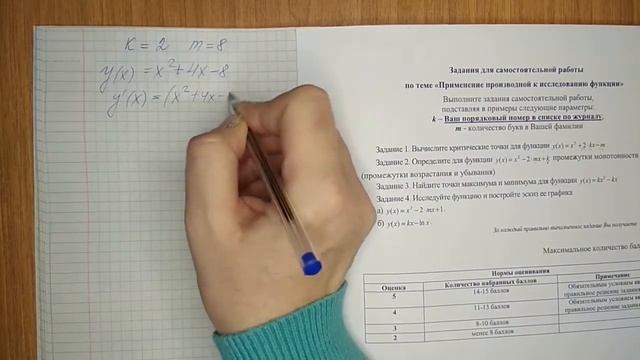 K = 2 m = 8
y(x) = x² + 4x - 8
y'(x) = (x² + 4x -
Задания для самостоятельной работы
по теме «Применение производной к исследованию функции»
Выполните задания самостоятельной работы,
подставляя в примеры следующие параметры:
k – Ваш порядковый номер в списке по журналу;
m - количество букв в Вашей фамилии
Задание 1. Вычислите критические точки для функции y(x) = x² + 2·kx - m
Задание 2. Определите для функции y(x) = x² - 2·mx + k промежутки монотонности
(промежутки возрастания и убывания)
Задание 3. Найдите точки максимума и минимума для функции
Задание 4. Исследуйте функцию и постройте эскиз ее графика
а) y(x) = x² - 2·mx + 1.
б) y(x) = kx - ln x.
За каждый правильно выполненное задание Вы получаете
Максимальное количество бал
Нормы оценивания
Оценка Количество набранных баллов Примечание
5 14-15 баллов Обязательным условием яв
правильное решение задани
4 11-13 баллов Обязательным условием яв
правильное решение задан
3 8-10 баллов
2 менее 8 баллов